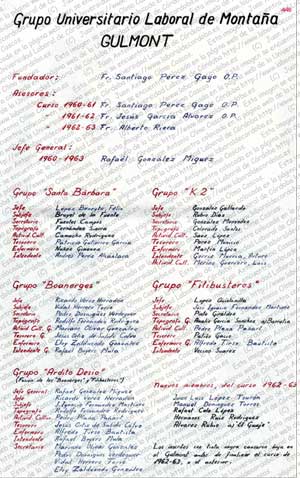 Grupo Universitario Laboral de Montaña
GULMONT
Fundador: Fr. Santiago Perez Gago O.P.
Asesores:
Curso 1960-61 Fr. Santiago Perez Gago O.P.
" 1961-62 Fr. Jesús García Alvarez O.P.
" 1962-63 Fr. Alberto Riera
Jefe General:
1960-1963 Rafael González Miguez
Grupo "Santa Bárbara"
Jefe Lopez Bouyte, Félix
Subjefe Brugel de la Fuente
Secretario Fuentes Campos
Topógrafo Fernández Sierra
Activid. Cult. Camacho Rodríguez
Tesorero Patricio Gutierrez García
Enfermero Nuñez Gimenez
Intendente Andrés Perez Alcántara
Grupo "K2"
Jefe González Gallardo
Subjefe Rubio Díaz
Secretario González Menendez
Topógrafo Colorado Salas
Activid. Cult. Saez López
Tesorero Perez Moncio
Enfermero Martin López
Intendente García Murcia, Arturo
Activid. Cult. Merino Guerrero, Luis
Grupo "Boanerges"
Jefe Ricardo Vera Herradón
Subjefe Vidal Herrero Tario
Secretario Pedro Dominguez Verdeguer
Topógrafo Rodolfo Fernandez Rodríguez
Activid Cult. G. Mariano Olivar González
Tesorero G. Jesús Cita de Salido Calvo
Enfermero Eloy Zaldaondo González
Intendente G. Rafael Boyero Mata
Grupo "Filibusteros"
Jefe Lopez Quintanilla
Subjefe José Ignacio Fernandez Martínez
Secretario Plato Giraldez
Topógrafo G.
Activid. Cult. Pedro Plana Panart
Tesorero
Enfermero G. Alfredo Tirez Bautista
Intendente Vecino Suarez
Grupo "Ardito Desio"
(Fusión de los "Boanerges" y "Filibusteros")
Jefe General Rafael González Miguez
Jefe Ricardo Verea Herradón
Subjefe J. Ignacio Fernandez Martínez
Topógrafo Rodolfo Fernandez Rodríguez
Activid Cultur. Pedro Plana Panart
Tesorero Jesús Cita de Salido Calvo
Enfermero Alfredo Tirez Bautista
Intendente Rafael Boyero Mata
Secretario Mariano Olivar González
Pedro Dominguez Verdeguer
Vidal Herrero Tario
Eloy Zaldaondo González
Nuevos miembros, del curso 1962-63
Jose Luis Lopez Tourón
Manuel Dominguez Torres
Rafael Cala López
Hermanos Ruiz Rodríguez
Alvarez Rubio
Los insertos con tinta negra causaron baja en
el Gulmont antes de finalizar el curso de
1962-63, o al anterior.